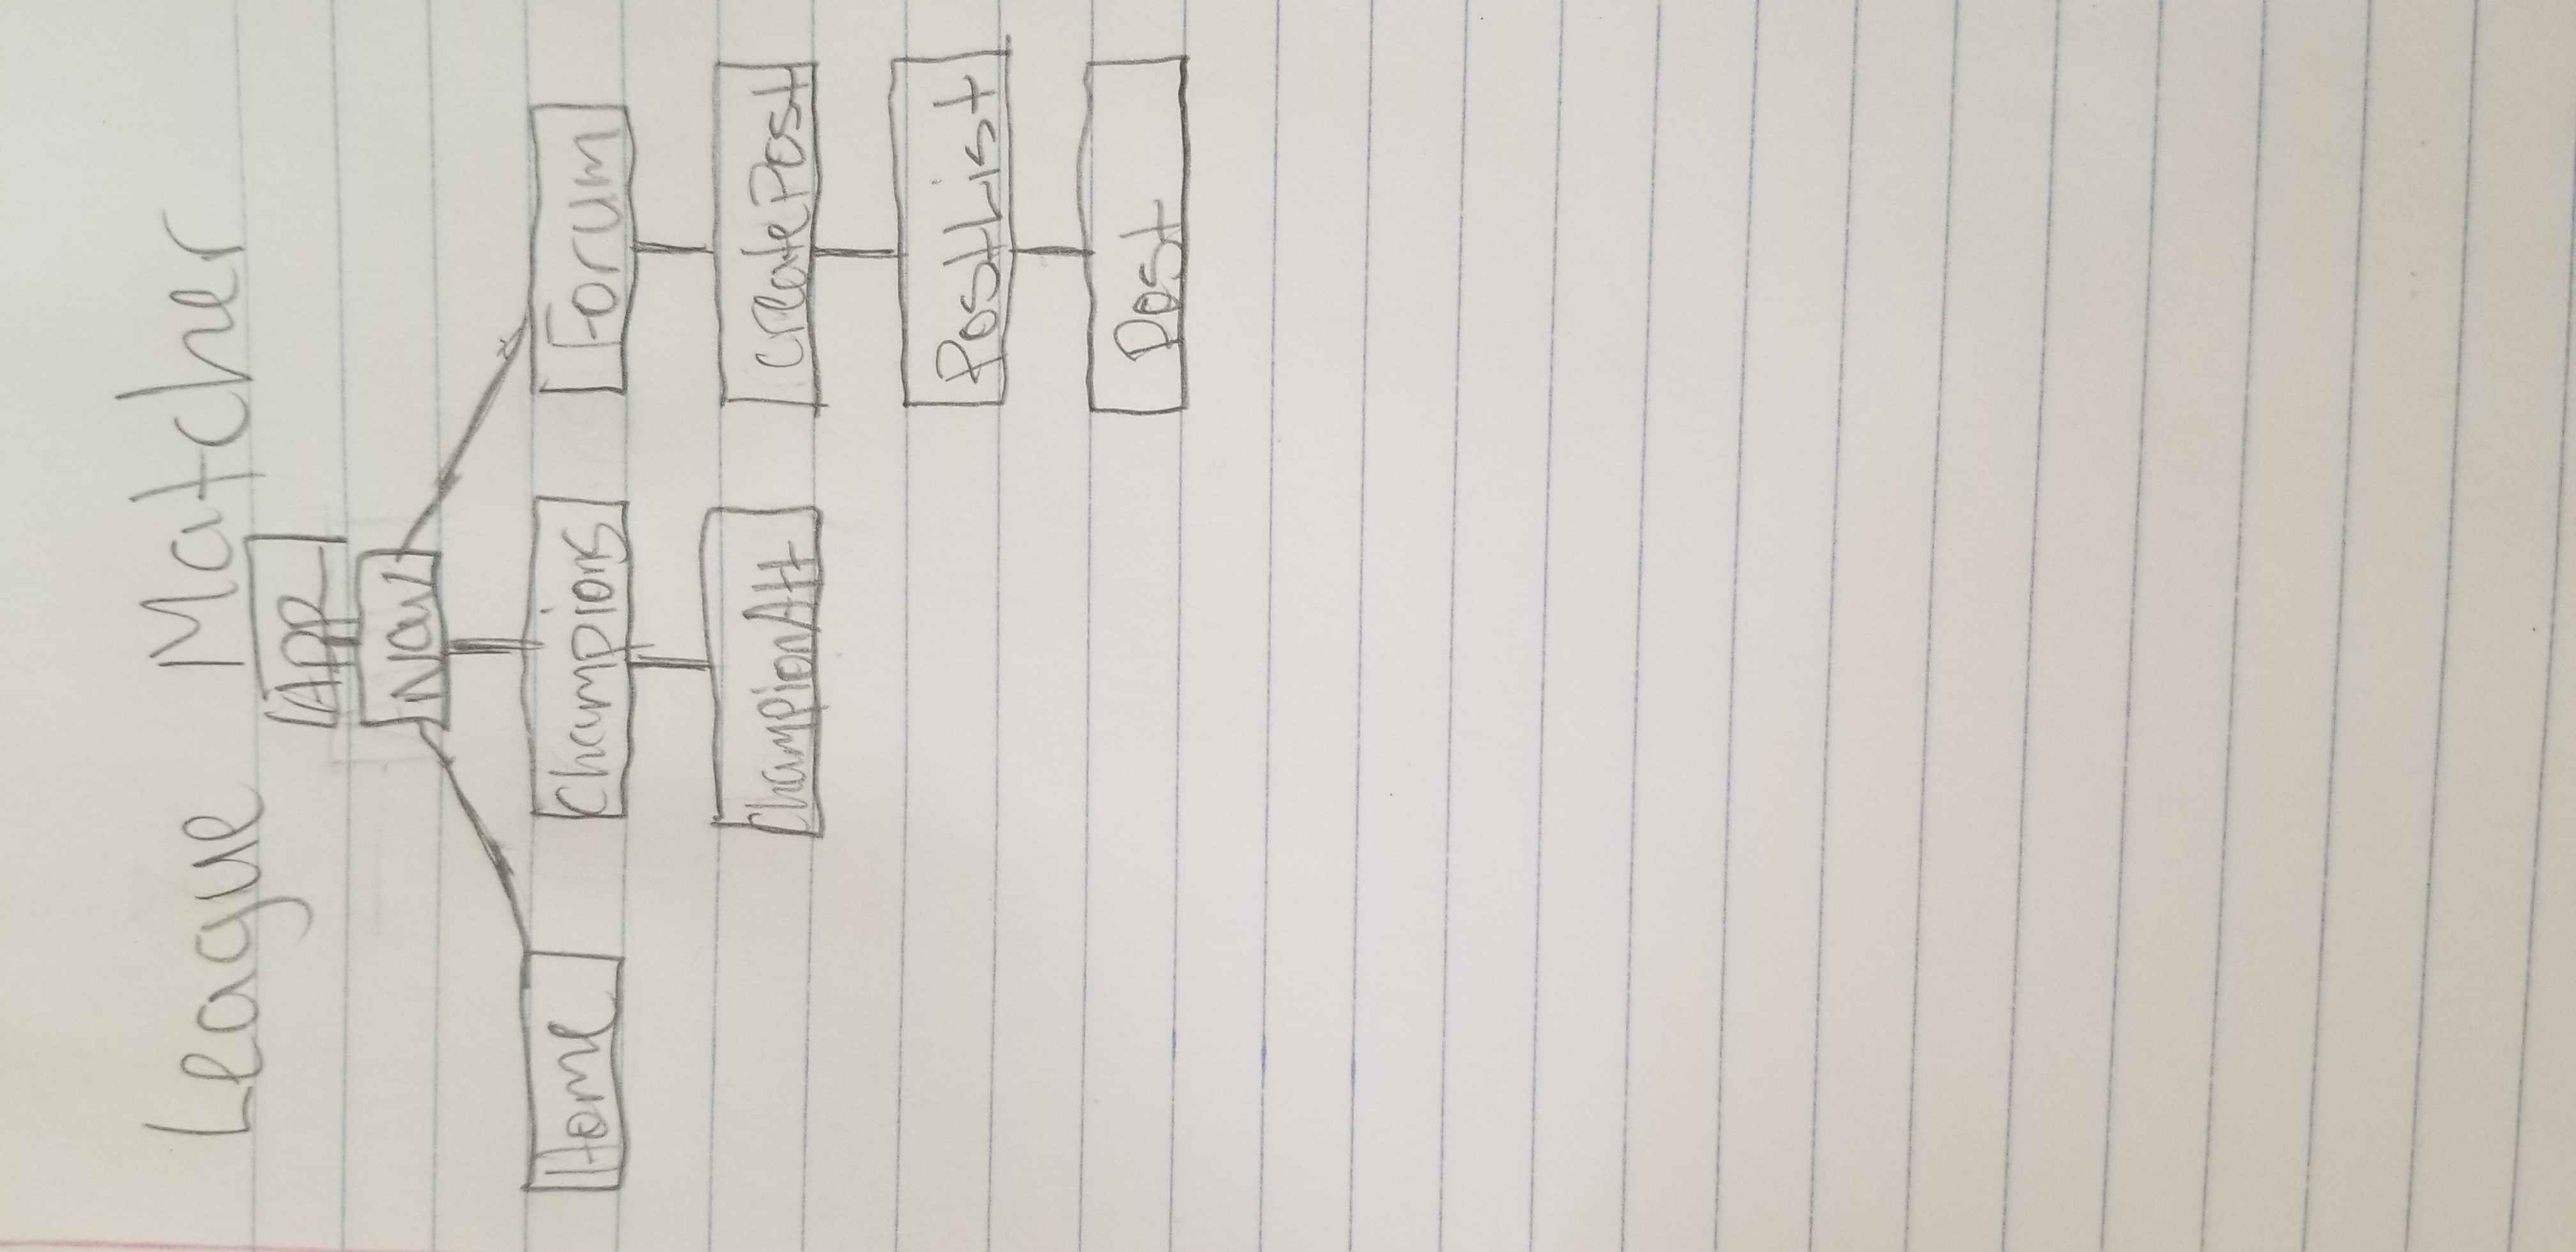 League Matcher
App
Nav
Home Champions Forum
ChampionAtt CreatePost
PostList
Post